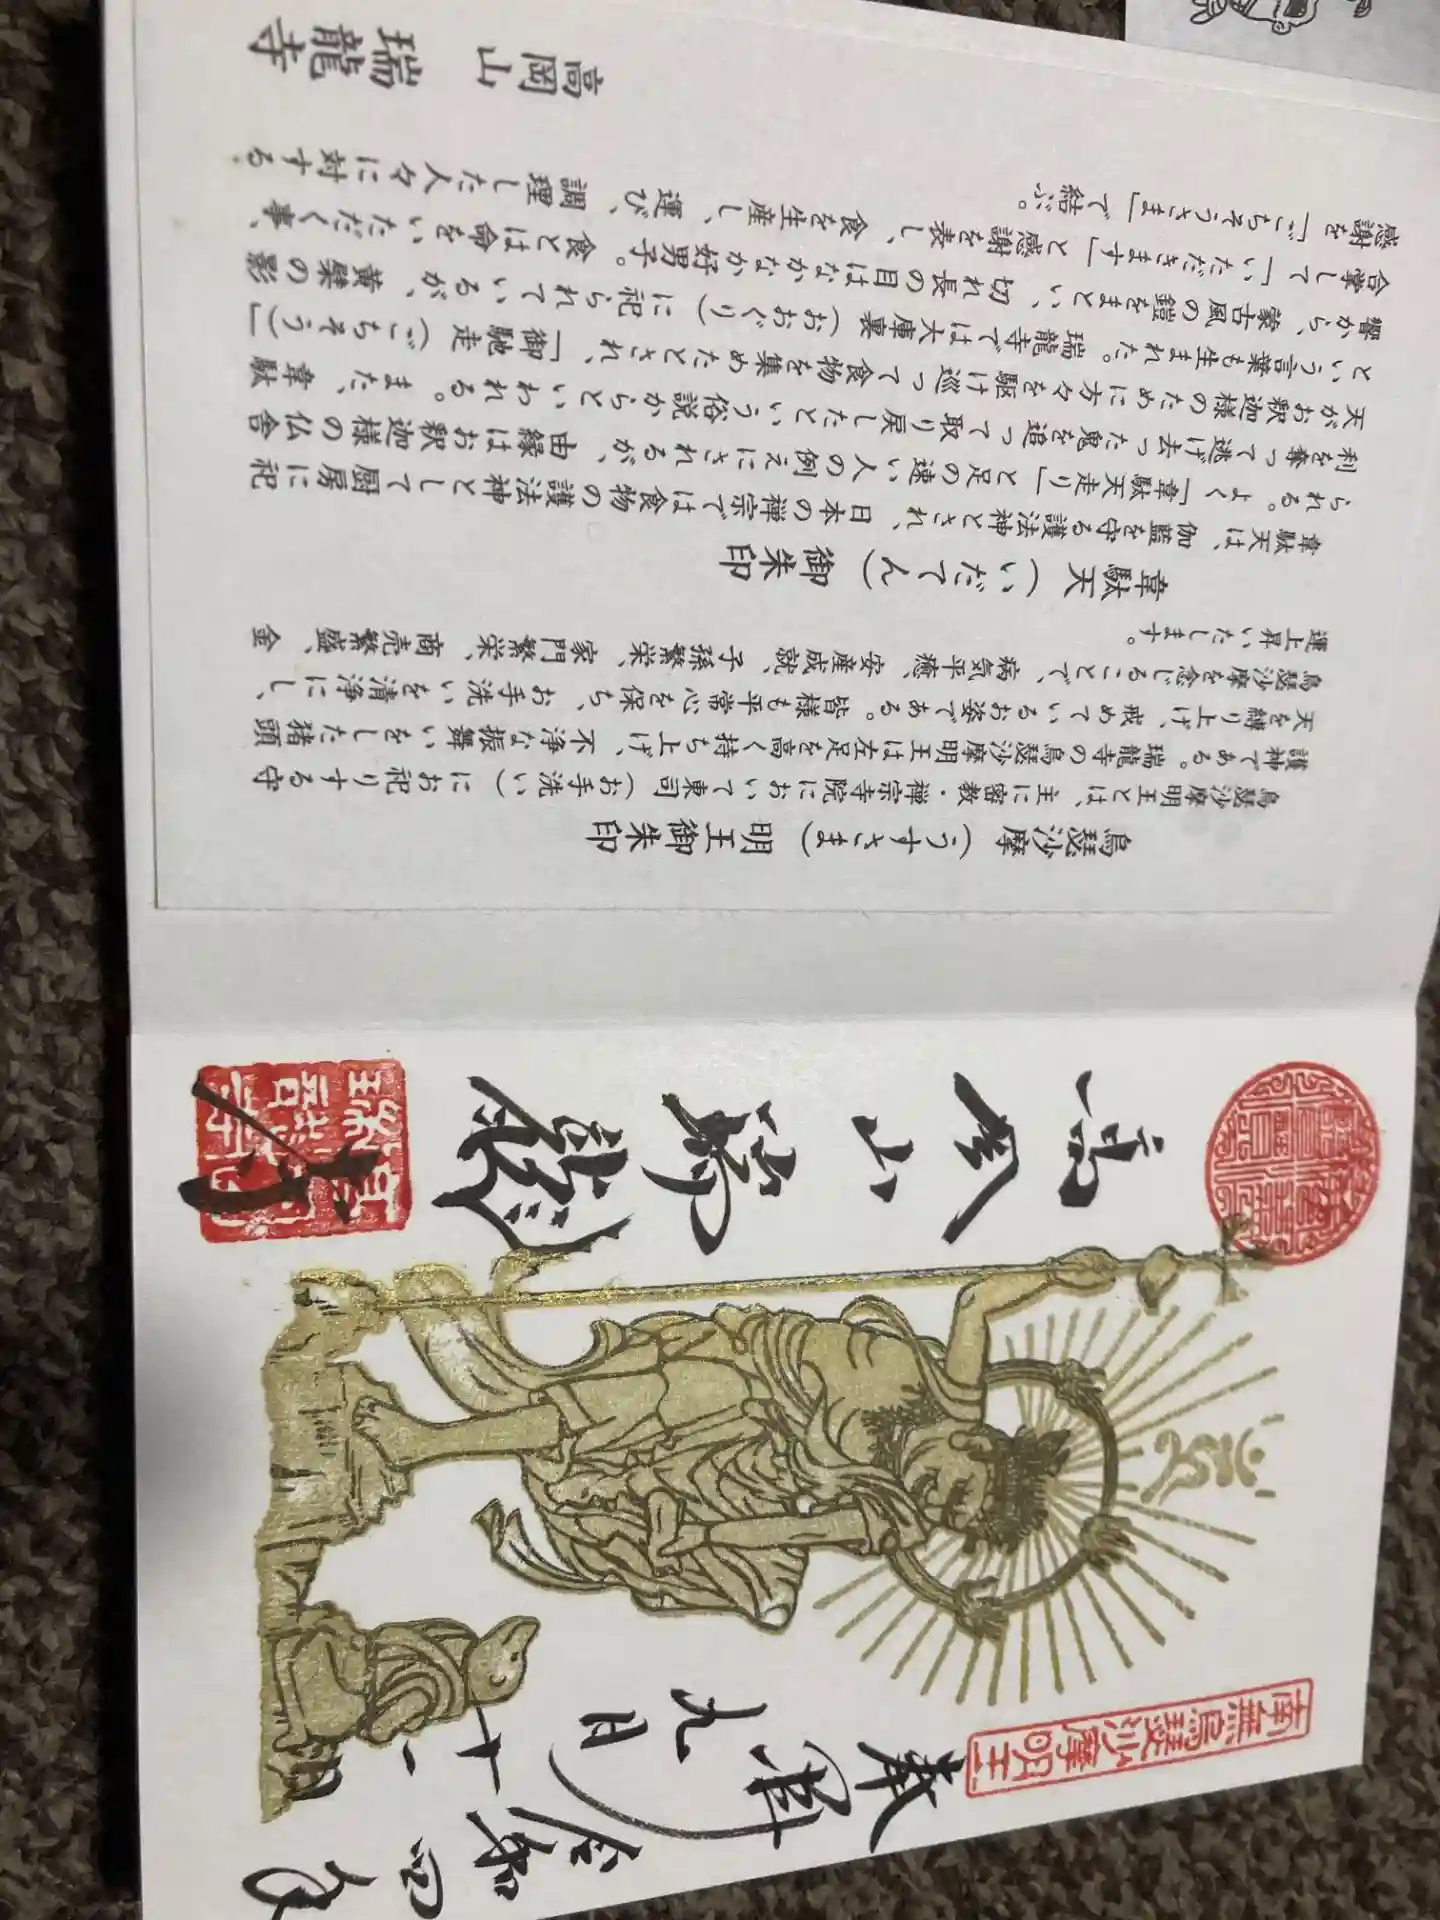 南無烏芻沙摩明王
奉拝
令和四年
十一月
九日
高岡山瑞龍寺
烏瑟沙摩（うすさま）明王御朱印
烏瑟沙摩明王とは、主に密教・禅宗寺院において東司（お手洗い）にお祀りする守
護神である。瑞龍寺の烏瑟沙摩明王は左足を高く持ち上げ、不浄な振舞いをした猪頭
天を縛り上げ、戒めているお姿である。皆様も平常心を保ち、お手洗いを清浄にし、
烏瑟沙摩を念じることで、病気平癒、安産成就、子孫繁栄、家門繁栄、商売繁盛、金
運上昇いたします。
韋駄天（いだてん）御朱印
韋駄天は、伽藍を守る護法神とされ、日本の禅宗では食物の護法神として厨房に祀
られる。よく「韋駄天走り」と足の速い人の例えにされるが、由縁はお釈迦様の仏舎
利を奪って逃げ去った鬼を追って取り戻したという俗説からといわれる。また、韋駄
天がお釈迦様のために方々を駆け巡って食物を集めたとされ、「御馳走（ごちそう）」
という言葉も生まれた。瑞龍寺では大庫裏（おおぐり）に祀られているが、黄檗の影
響から、蒙古風の鎧をまとい、切れ長の目はなかなか好男子。食とは命をいただく事、
合掌して「いただきます」と感謝を表し、食を生産し、運び、調理した人々に対する
感謝を「ごちそうさま」で結ぶ。
高岡山 瑞龍寺